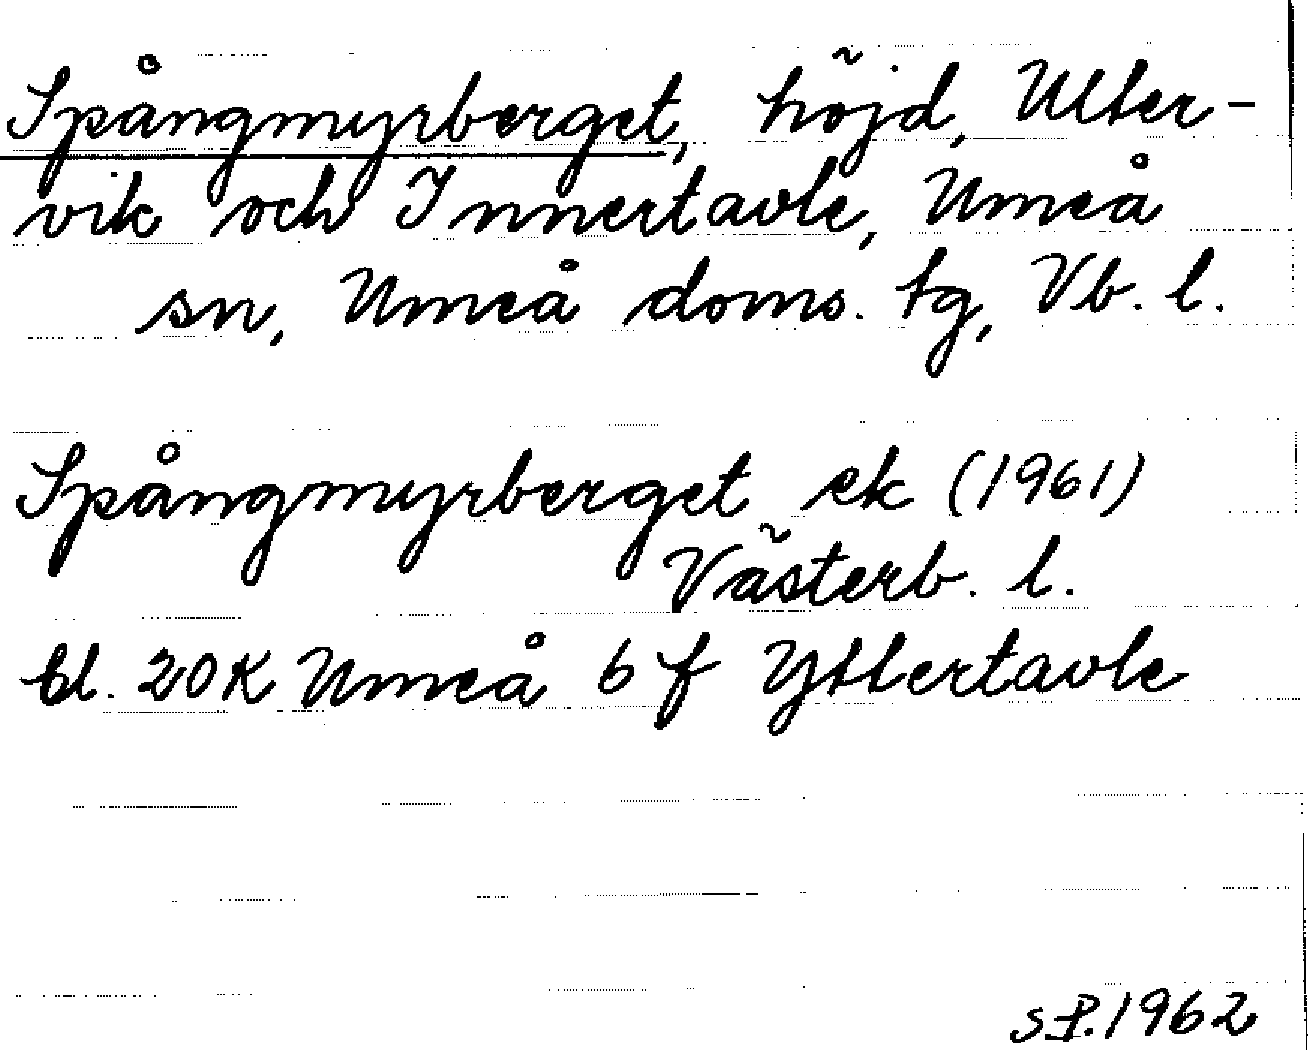 Spångmyrberget, höjd, Ulter-
vik och Innertavle, Umeå
sn, Umeå doms. tg, Vb. l.
Spångmyrberget ek (1961)
Västerb. l.
bl. 20K Umeå 6 f Yttertavle
S.P. 1962